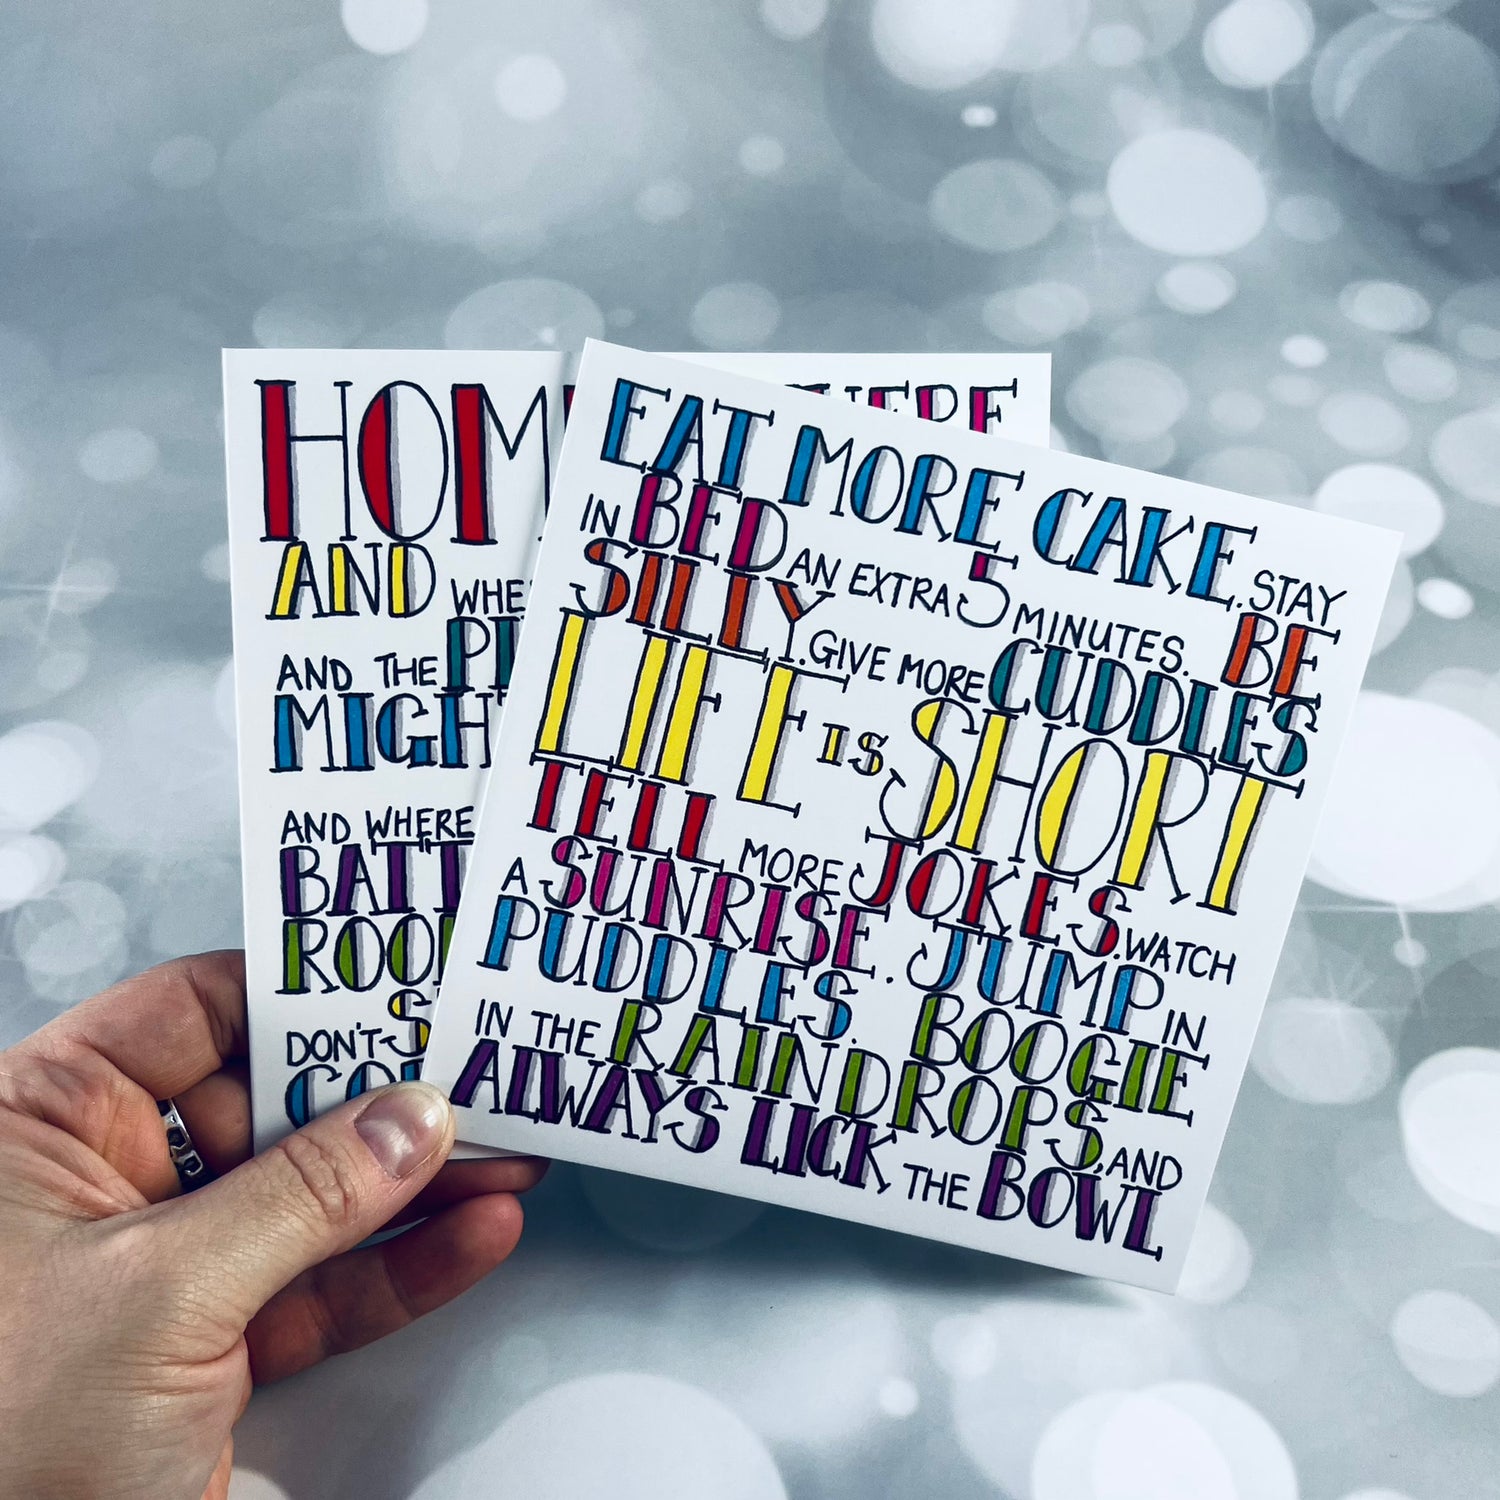 HOM
AND WHE
AND THE
MIGH
AND WHERE
BATT
ROO
DON'T S
CO
EAT MORE CAKE. STAY
IN BED AN EXTRA 5 MINUTES. BE
SILLY. GIVE MORE CUDDLES
LIFE IS SHORT
TELL MORE JOKES. WATCH
A SUNRISE. JUMP IN
PUDDLES. BOOGIE
IN THE RAINDROPS, AND
ALWAYS LICK THE BOWL